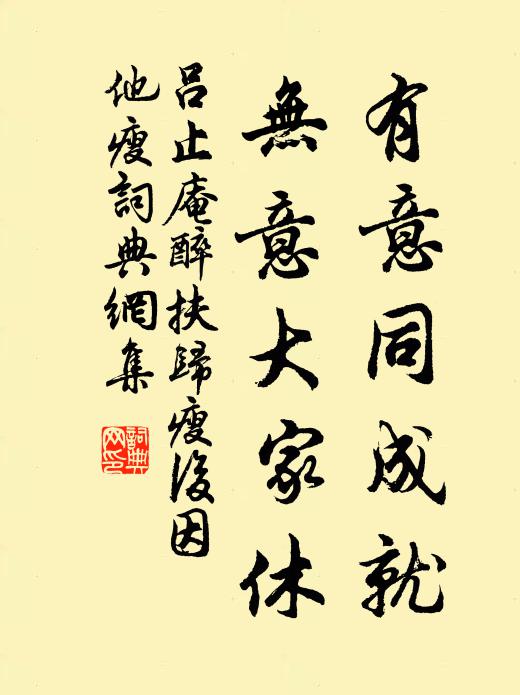 有意同成就
無意大家休
呂止庵醉扶歸瘦後因
他瘦詞典網集
詞典網印